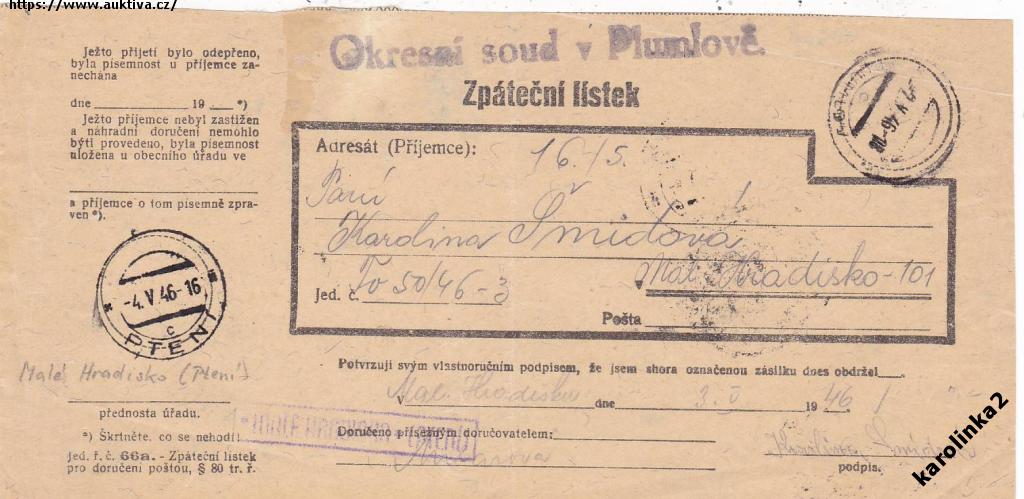 https://www.auktiva.cz/
Ježto přijetí bylo odepřeno,
byla písemnost u příjemce za-
nechána
dne 19 *)
Ježto příjemce nebyl zastižen
a náhradní doručení nemohlo
býti provedeno, byla písemnost
uložena u obecního úřadu ve
a příjemce o tom písemně zpra-
ven *).
-4.V.46-16
c
PTENÍ
Malé Hradisko (Ptení)
přednosta úřadu.
*) Škrtněte, co se nehodí!
Jed. ř. č. 66a. - Zpáteční lístek
pro doručení poštou, § 80 tr. ř.
Okresní soud v Plumlově.
Zpáteční lístek
Adresát (Příjemce): 16/5.
Paní
Karolina Šmídova
Mal. Hradisko-101
Jed. č. To 50/46-3
Pošta
Potvrzuji svým vlastnoručním podpisem, že jsem shora označenou zásilku dnes obdržel
V Mal. Hradisku dne 3. V. 1946
Doručeno přísežným doručovatelem:
podpis.
karolinka2